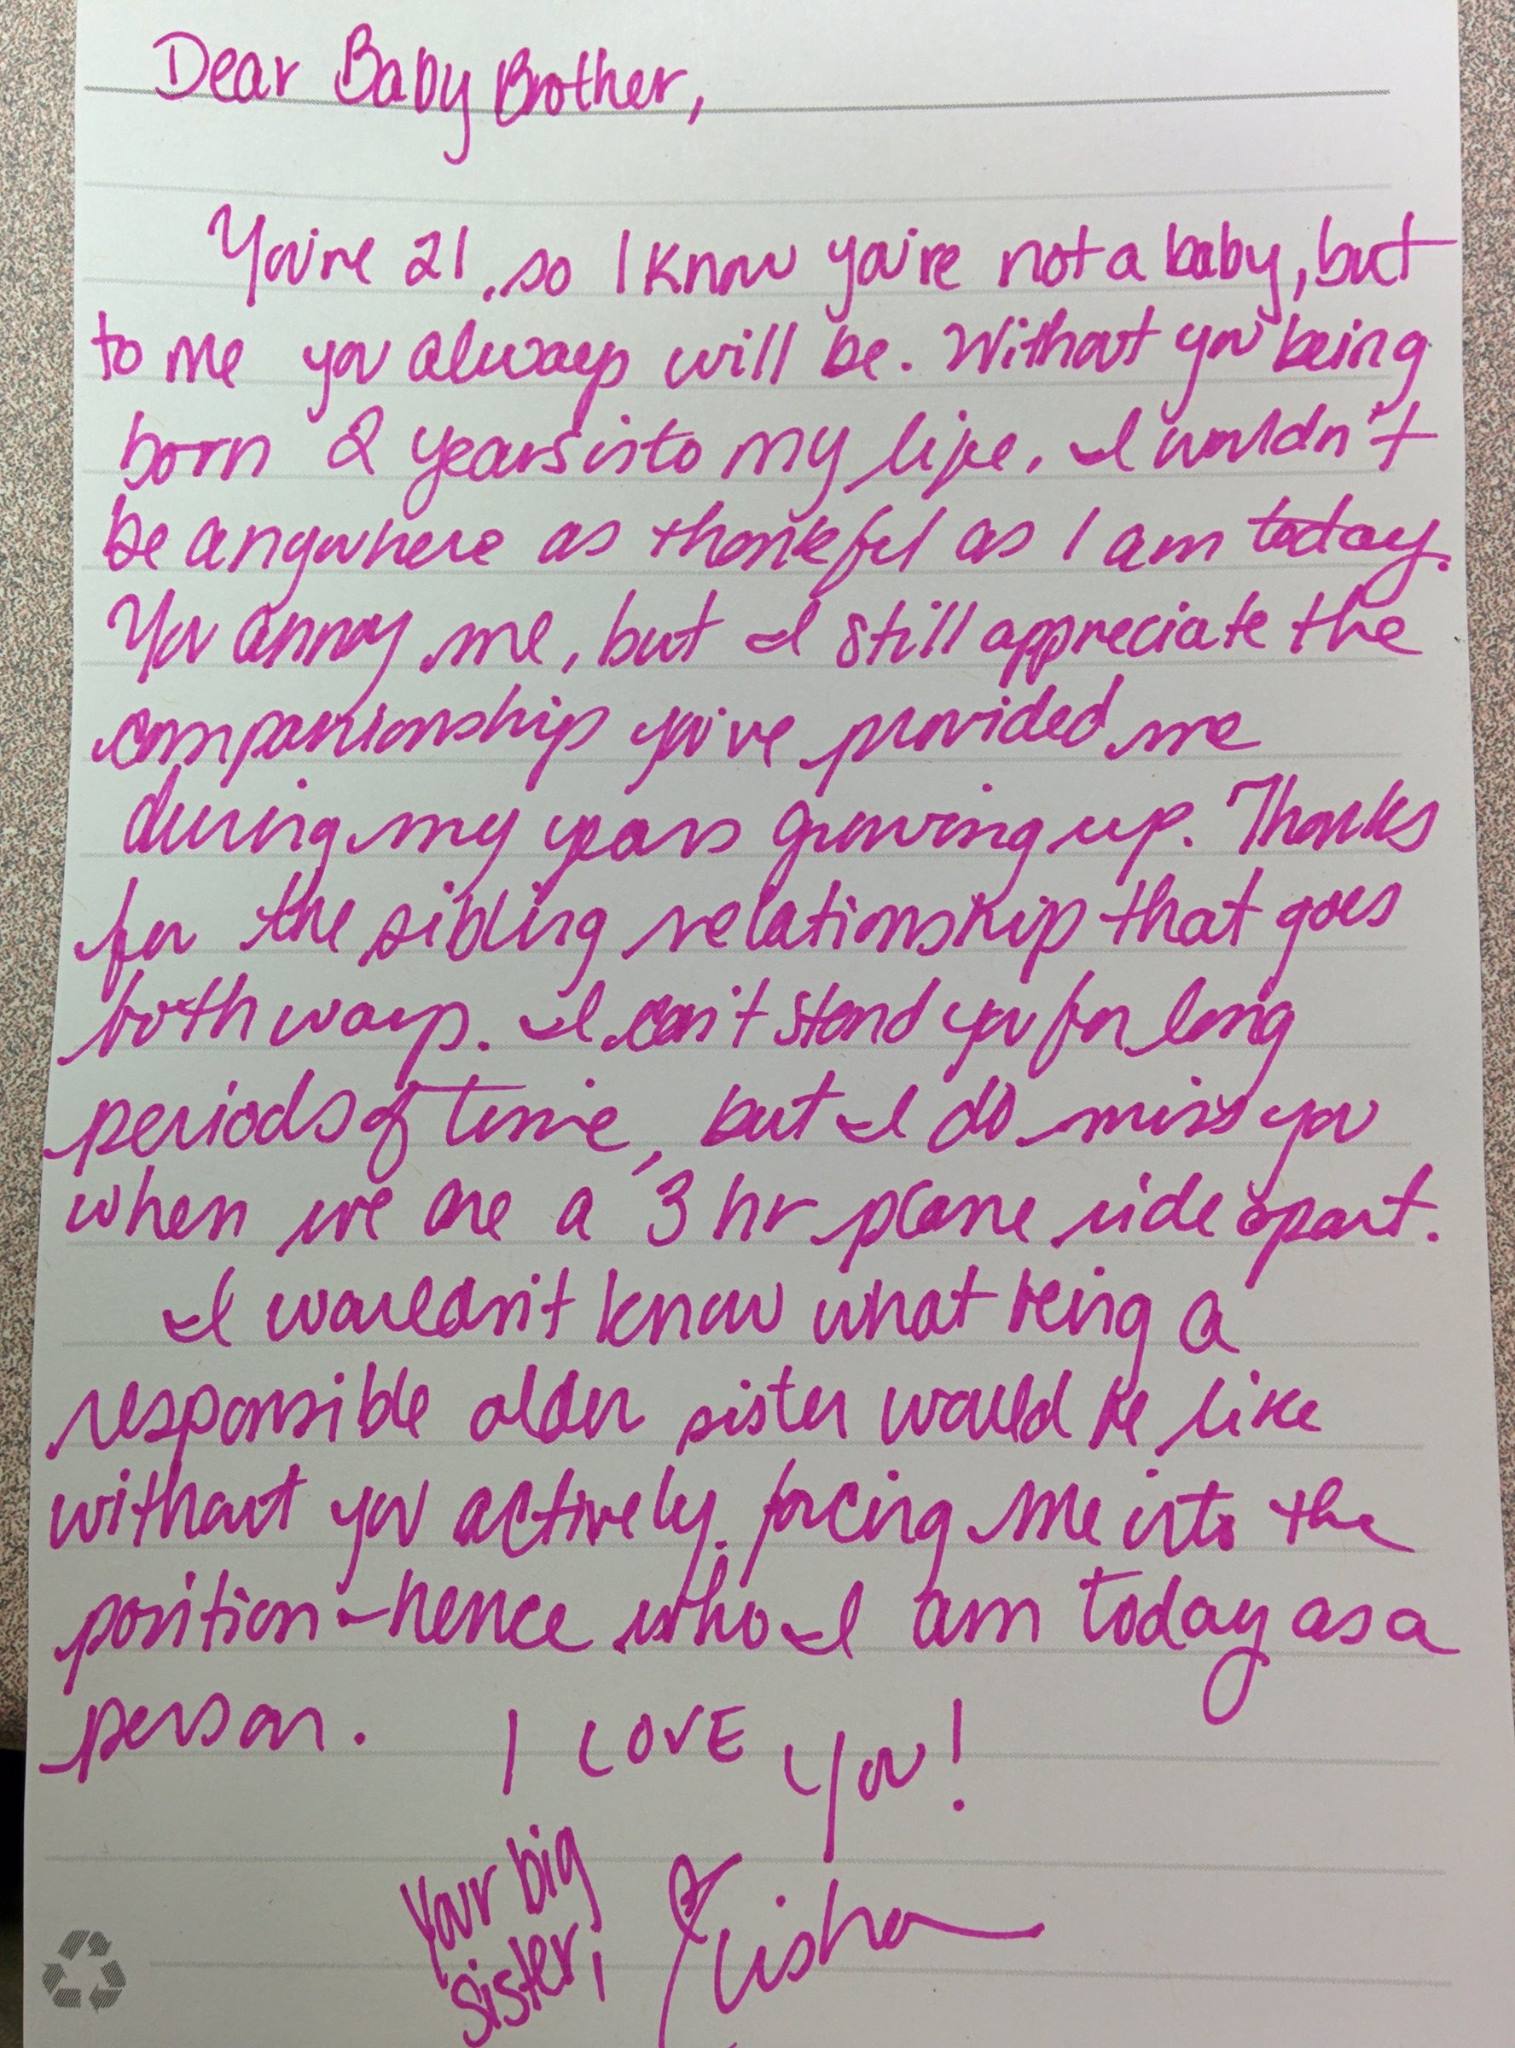 Dear Baby Brother,
You're 21, so I know you're not a baby, but
to me you always will be. Without you being
born 2 years into my life, I wouldn't
be anywhere as thankful as I am today.
You annoy me, but I still appreciate the
companionship you've provided me
during my years growing up. Thanks
for the sibling relationship that goes
both ways. I can't stand you for long
periods of time, but I do miss you
when we are a 3 hr plane ride apart.
I wouldn't know what being a
responsible older sister would be like
without you actively forcing me into the
position - hence who I am today as a
person.
I LOVE you!
Your big
sister,